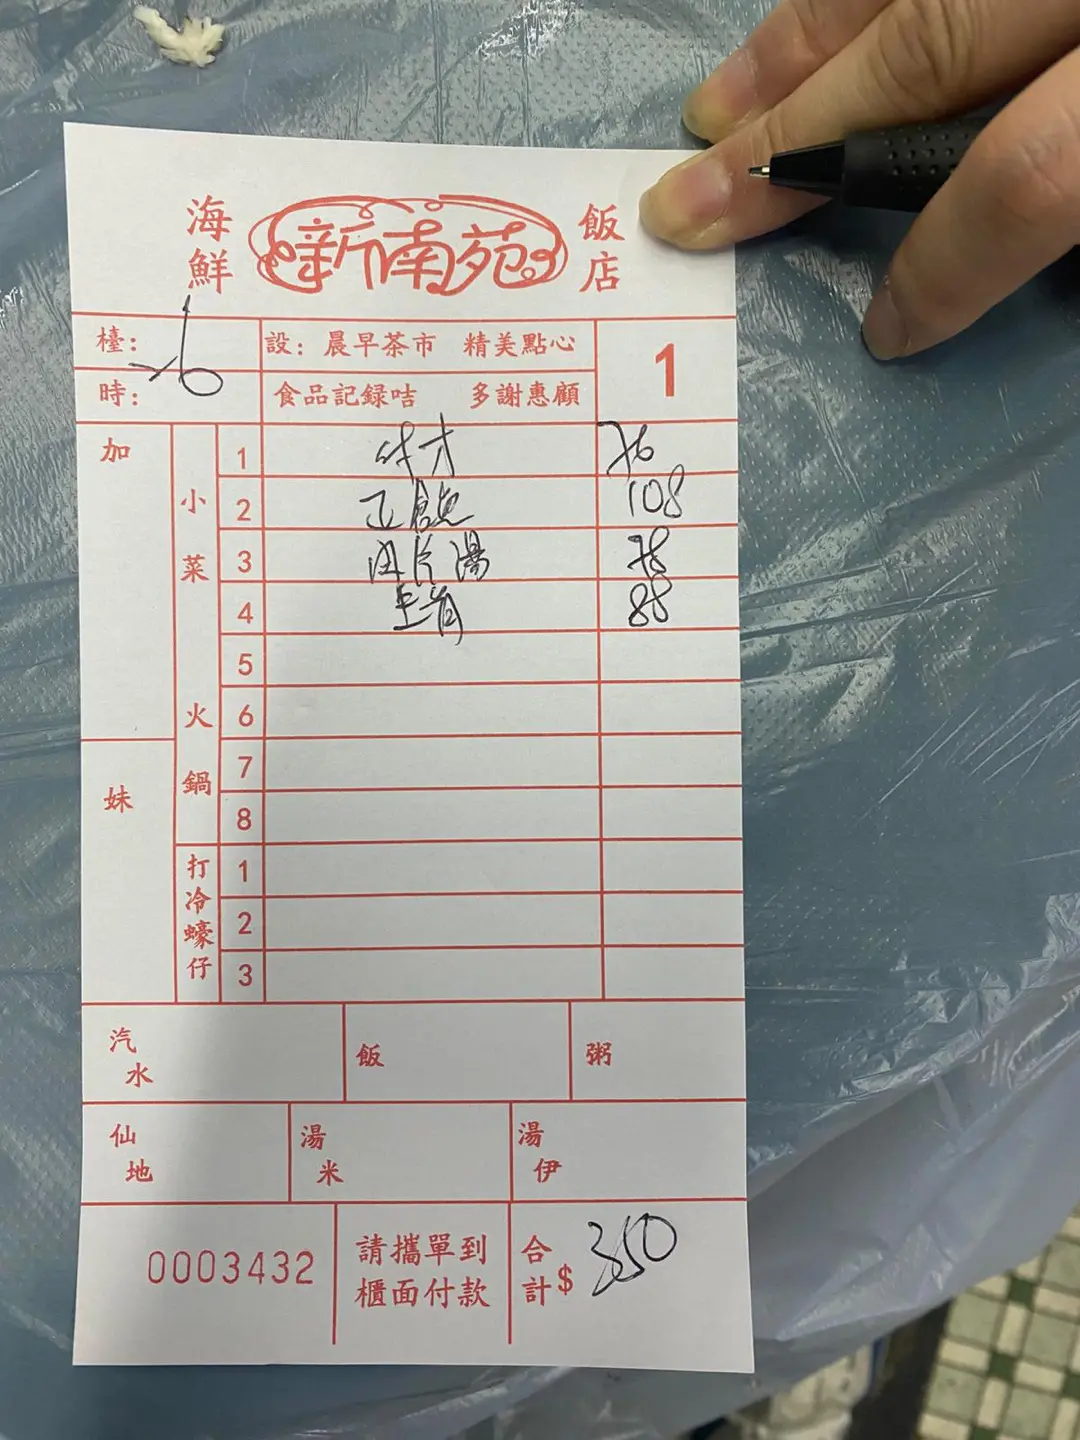 海鮮 新南苑 飯店
檯：
設：晨早茶市 精美點心
1
時：
食品記録咭 多謝惠顧
加
妹
小菜
火鍋
1 76
2 108
3 片湯 78
4 88
5
6
7
8
打冷蠔仔
1
2
3
汽水
飯
粥
仙地
湯米
湯伊
0003432
請攜單到櫃面付款
合計$ 350